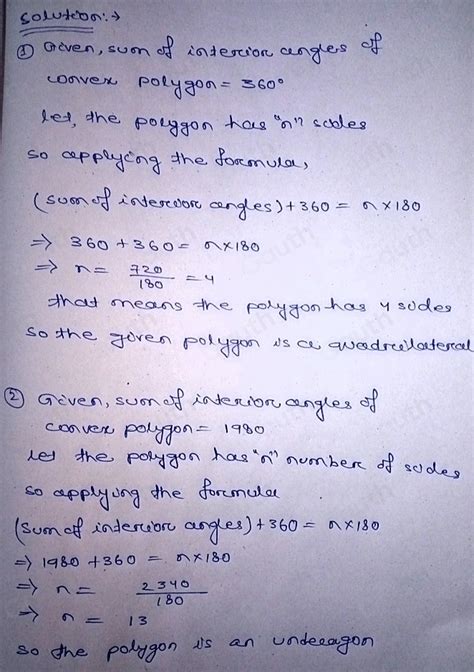 Solution:→
① Given, sum of interior angles of
convex polygon = 360°
let, the polygon has "n" sides
so applying the formula,
(sum of interior angles) + 360 = n×180
⇒ 360 + 360 = n×180
⇒ n = 720/180 = 4
that means the polygon has 4 sides
so the given polygon is a quadrilateral
② Given, sum of interior angles of
convex polygon = 1980
let the polygon has "n" number of sides
so applying the formula
(sum of interior angles) + 360 = n×180
⇒ 1980 + 360 = n×180
⇒ n = 2340/180
⇒ n = 13
so the polygon is an undecagon